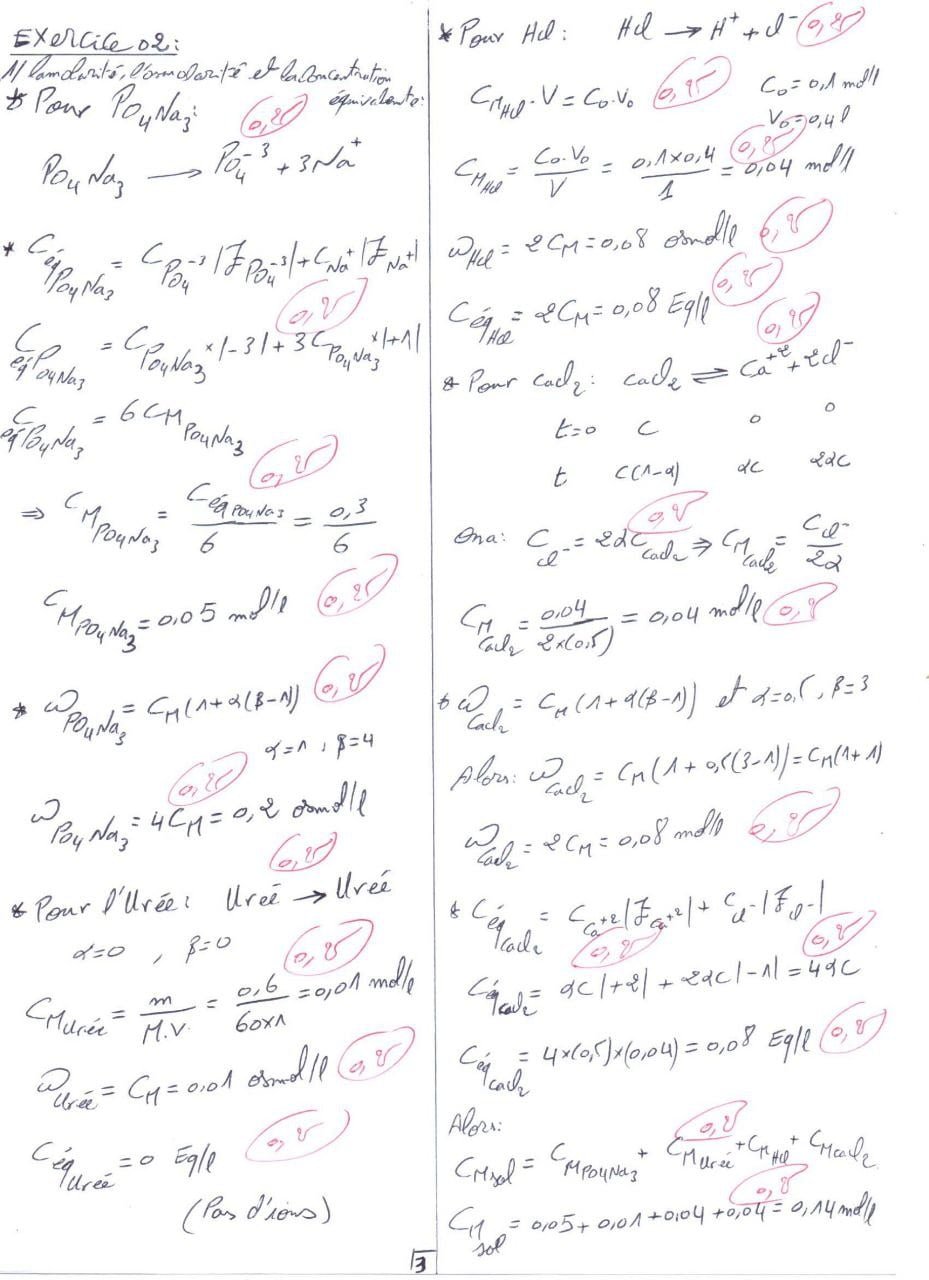 Exercice 02:
1/ la molarité, l'osmolarité et la concentration
équivalente:
* Pour PO₄Na₃:
0,25
PO₄Na₃ → PO₄⁻³ + 3Na⁺
* Céq PO₄Na₃ = C PO₄⁻³ |Z PO₄⁻³| + C Na⁺ |Z Na⁺|
0,25
Céq PO₄Na₃ = C PO₄Na₃ × |-3| + 3 C PO₄Na₃ × |+1|
Céq PO₄Na₃ = 6 CM PO₄Na₃
0,25
⇒ CM PO₄Na₃ = Céq PO₄Na₃ / 6 = 0,3 / 6
CM PO₄Na₃ = 0,05 mol/l 0,25
* ω PO₄Na₃ = CM (1+α(β-1)) 0,25
α=1 , β=4
0,25
ω PO₄Na₃ = 4CM = 0,2 osmol/l
0,25
* Pour l'Urée: Urée → Urée
α=0 , β=0
0,25
CM Urée = m / M.V = 0,6 / 60×1 = 0,01 mol/l
ω Urée = CM = 0,01 osmol/l 0,25
Céq Urée = 0 Eq/l 0,25
(Pas d'ions)
* Pour Hcl: Hcl → H⁺ + cl⁻ 0,25
CM Hcl . V = C₀.V₀ 0,25 C₀ = 0,1 mol/l
V₀ = 0,4 l
0,25
CM Hcl = C₀.V₀ / V = 0,1×0,4 / 1 = 0,04 mol/l
ω Hcl = 2CM = 0,08 osmol/l 0,25
Céq Hcl = 2CM = 0,08 Eq/l 0,25
0,25
* Pour cacl₂: cacl₂ ⇌ Ca⁺² + 2cl⁻
t=0 C 0 0
t C(1-α) αC 2αC
0,25
Ona: C cl⁻ = 2αC cacl₂ ⇒ CM cacl₂ = C cl⁻ / 2α
CM cacl₂ = 0,04 / 2×(0,5) = 0,04 mol/l 0,25
* ω cacl₂ = CM (1+α(β-1)) et α=0,5 , β=3
Alors: ω cacl₂ = CM (1+0,5(3-1)) = CM (1+1)
ω cacl₂ = 2CM = 0,08 mol/l 0,25
* Céq cacl₂ = C ca⁺² |Z ca⁺²| + C cl⁻ |Z cl⁻|
0,25 0,25
Céq cacl₂ = αC |+2| + 2αC |-1| = 4αC
Céq cacl₂ = 4×(0,5)×(0,04) = 0,08 Eq/l 0,25
Alors:
0,25
CM sol = CM PO₄Na₃ + CM Urée + CM Hcl + CM cacl₂
0,25
CM sol = 0,05 + 0,01 + 0,04 + 0,04 = 0,14 mol/l
3